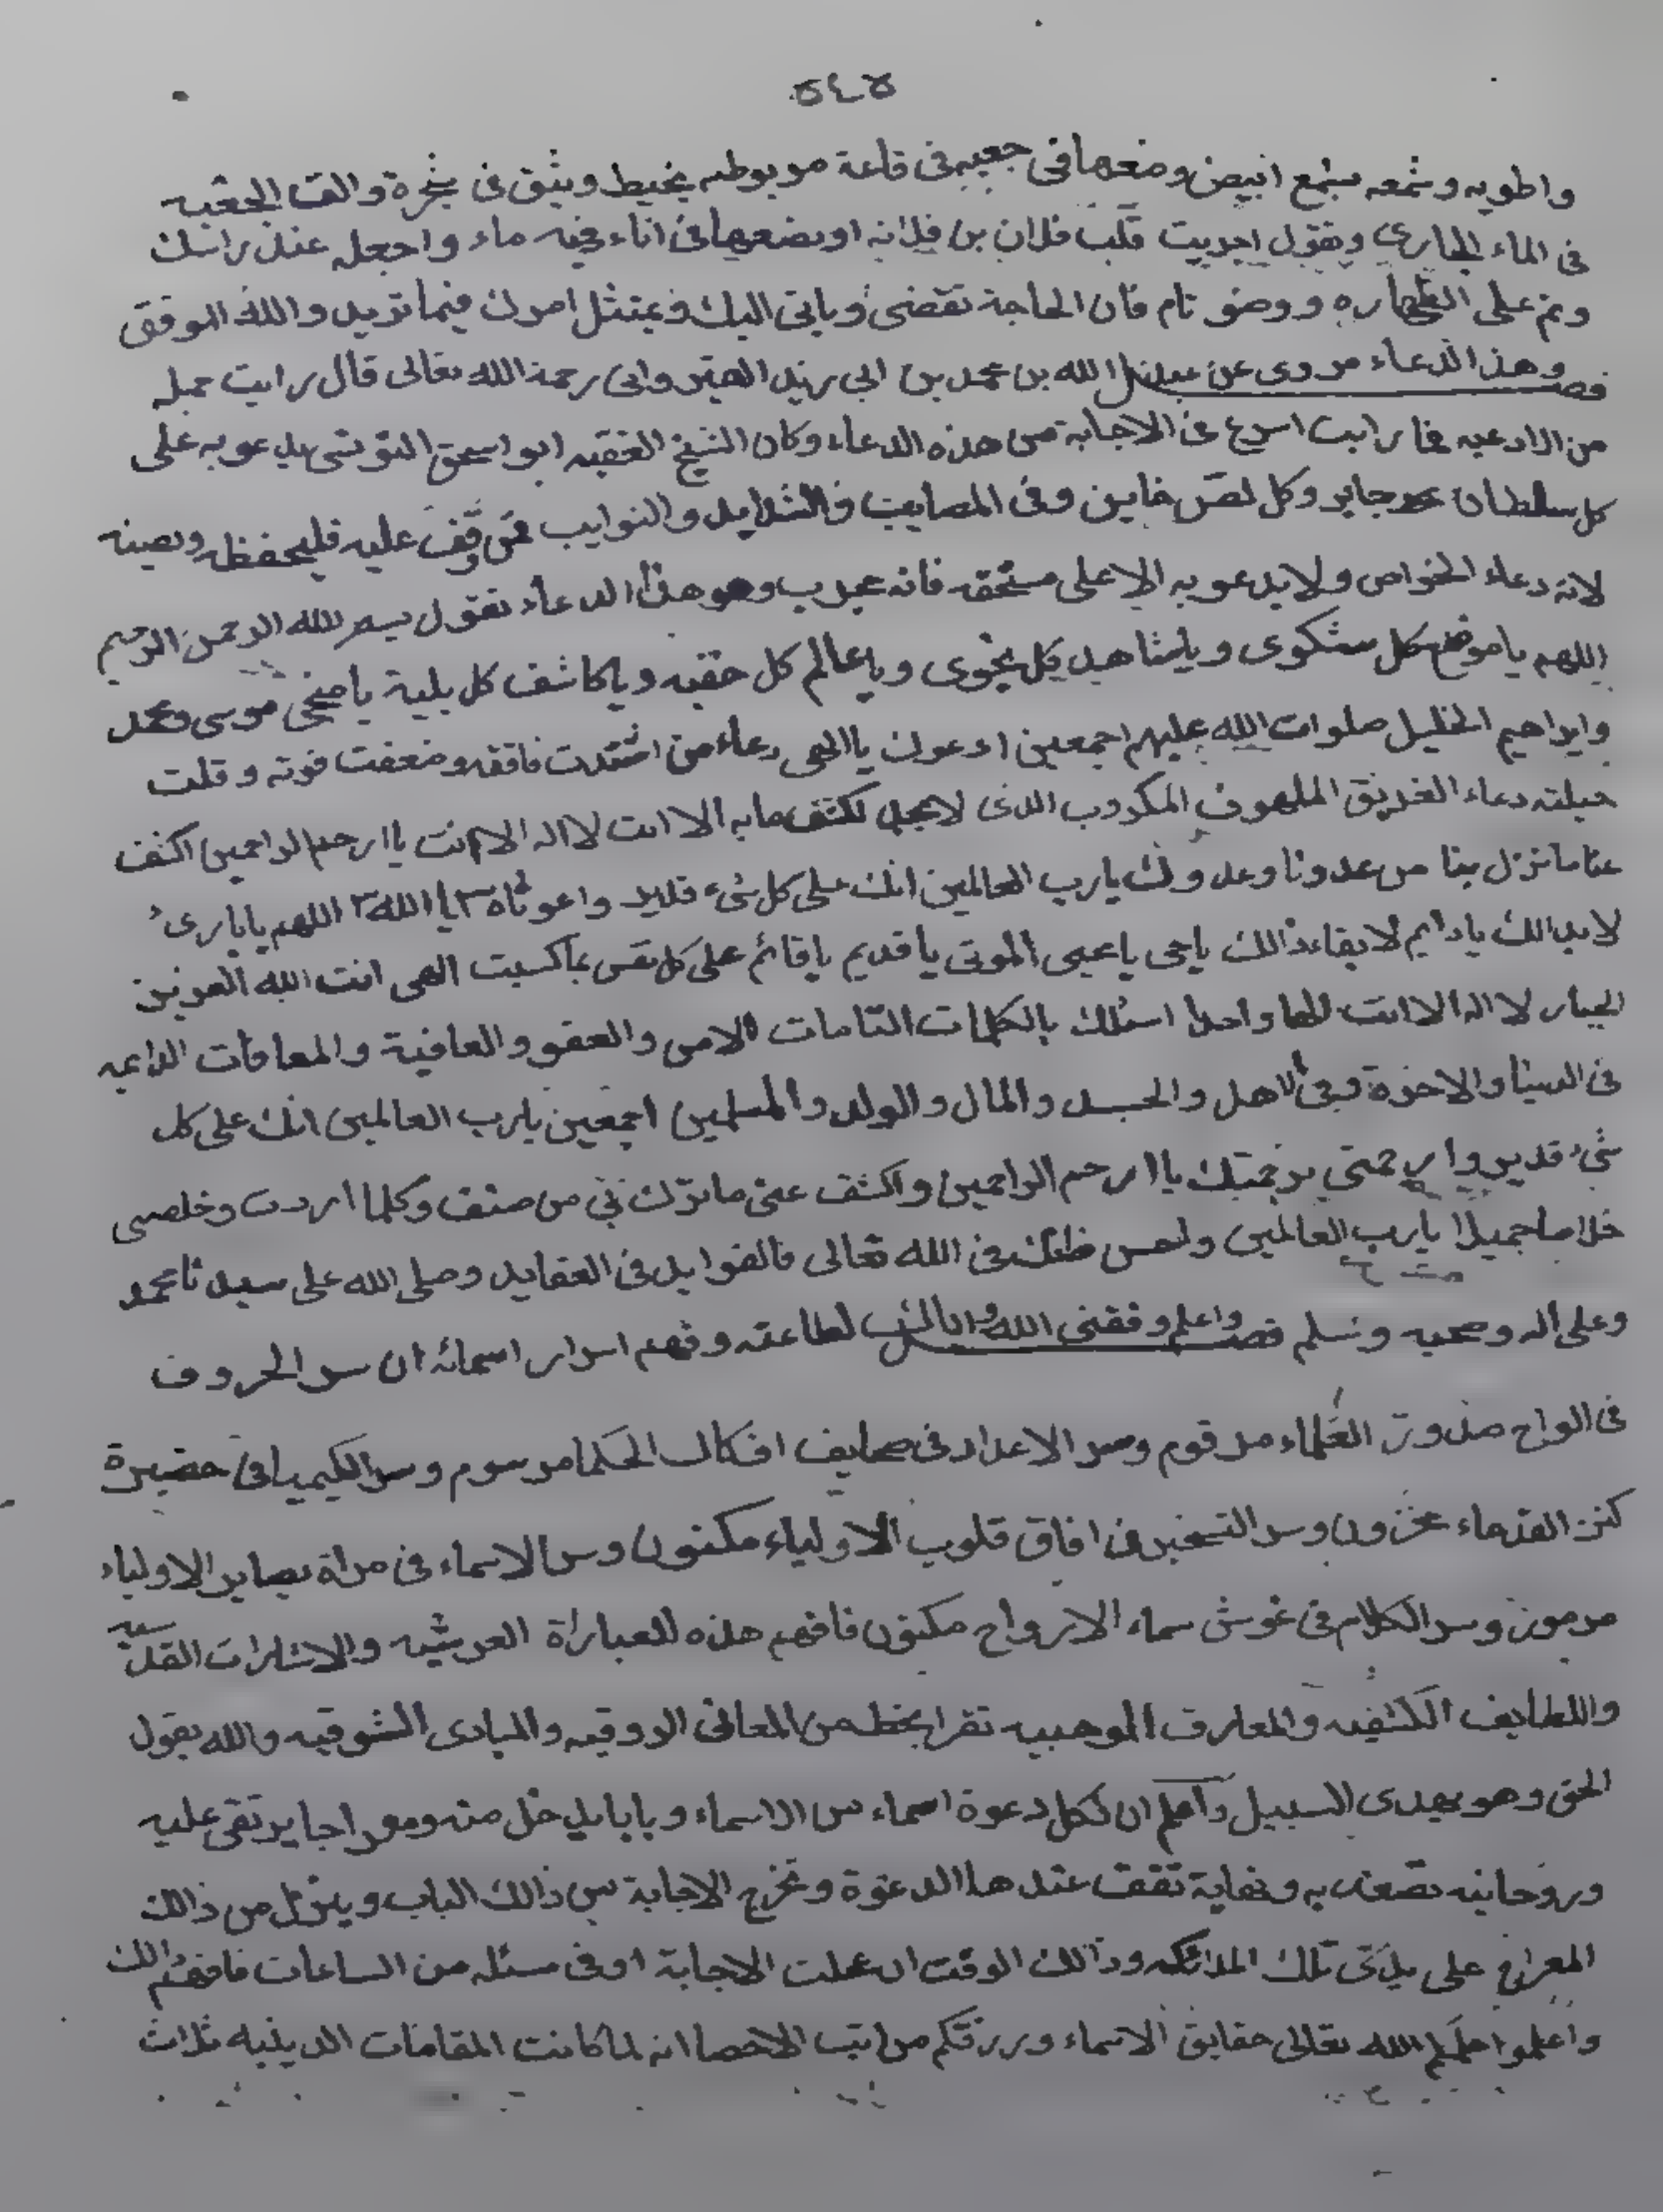 ٥٤٥
واطويه وشمعه بشمع ابيض وضعها فى جعبه فى قاعة مربوطه بخيط وبثق فى شجرة والق الجعبه
فى الماء الجاري وبقول اجريت قلب فلان بن فلانه او بضعها فى اناء فيه ماء واجعله عند راسك
ونم على الطهاره ووضو تام فان الحاجة تقضى وياتى اليك ويمتثل امرك فيما تريد والله الموفق
فصل وهذا الدعاء مروى عن عبد الله بن محمد بن ابى زيد القيروانى رحمة الله تعالى قال رايت جمله
من الادعيه فما رايت اسرع فى الاجابة من هذه الدعاء وكان الشيخ الفقيه ابو اسحق التونسى يدعو به على
كل سلطان جاير وكل لص خاين وفى المصايب والشدايد والنوايب فمن وقف عليه فليحفظه وبصينه
لانه دعاء الخواص ولا يدعو به الا على مستحقه فانه مجرب وهو هذا الدعاء تقول بسم الله الرحمن الرحيم
اللهم يا موضع كل شكوى ويا شاهد كل نجوى ويا عالم كل خفيه ويا كاشف كل بلية يا منجى موسى ومحمد
وابراهيم الخليل صلوات الله عليهم اجمعين ادعوك يا الهى دعاء من اشتدت فاقته وضعفت قوته وقلت
حيلته دعاء الغريق الملهوف المكروب الذى لا يجد لكشف مابه الا انت لا اله الا انت يا ارحم الراحمين اكشف
عنا ما نزل بنا من عدونا وعدوك يارب العالمين انك على كل شىء قدير واغوثاه ٣ يا الله ٣ اللهم يا بارىء
لا بدالك يا دايم لا بقاء ذالك يا حى يا محيى الموتى يا قديم يا قائم على كل نفس بما كسبت الهى انت الله العزيز
الجبار لا اله الا انت الها واحدا اسئلك بالكلمات التامات الامن والعفو والعافية والمعافات الداعيه
فى الدنيا والاخرة وفى الاهل والجسد والمال والولد والمسلمين اجمعين يارب العالمين انك على كل
شىء قدير وارحمنى برحمتك يا ارحم الراحمين واكشف عنى ما نزل بى من ضيق وكلما اردت وخلصنى
خلاصا جميلا يارب العالمين ولحسن ظنك فى الله تعالى فالفوايد فى العقايد وصلى الله على سيدنا محمد
وعلى اله وصحبه وسلم فصل واعلم وفقنى الله وايا لطاعته وفهم اسرار اسمائه ان سر الحروف
فى الواح صدور العلماء مرقوم وسر الاعداد فى صحايف افكار الحكما مرسوم وسر الكيميا فى حضيرة
كنز القدماء مخزون وسر التسخير فى افاق قلوب الاولياء مكنون وسر الاسماء فى مراة بصاير الاولياء
مرموز وسر الكلام فى غوش سماء الارواح مكنون فافهم هذه العباراة العرشيه والاشارات القدسيه
واللطايف الكشفيه والمعارف الموهبيه تقرا بخط من المعانى الذوقيه والمبادى الشوقيه والله يقول
الحق وهو يهدى السبيل واعلم ان لكل دعوة اسماء من الاسماء وبابا يدخل منه ومعراجا يرتقى عليه
وروحانيه تصعد به ونهاية تقف عندها الدعوة وتخرج الاجابة من ذالك الباب وينزل من ذالك
المعراج على يدى تلك الملائكه وذالك الوقت ان عملت الاجابة او فى مسئله من الساعات فافهم ذالك
واعلموا الله تعالى حقايق الاسماء ورزقكم مراتب الاحصا انه لما كانت المقامات الدينيه ثلاث